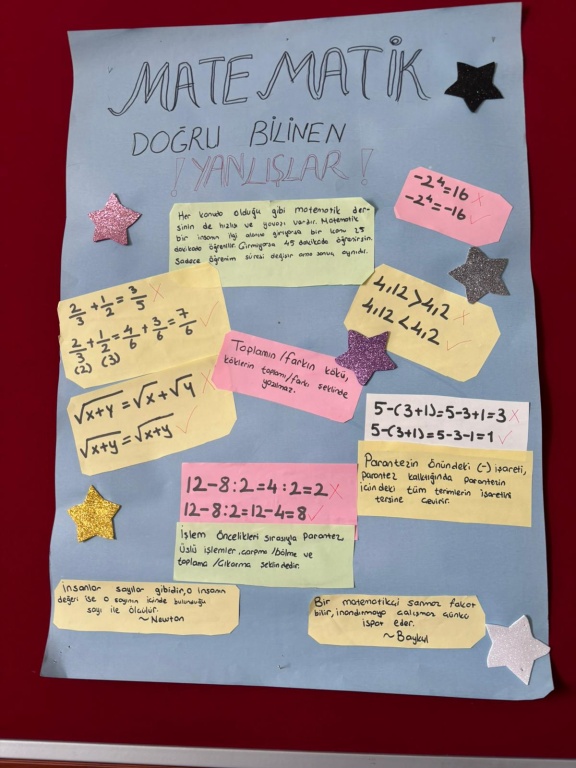 MATEMATİK
DOĞRU BİLİNEN
! YANLIŞLAR !
-2⁴=16 ×
-2⁴=-16 ✓
Her konuda olduğu gibi matematik der-
sinin de hızlısı ve yavaşı vardır. Matematik
bir insanın ilgi alanına giriyorsa bir konu 25
dakikada öğrenilir. Girmiyorsa 45 dakikada öğrenirsin.
Sadece öğrenim süresi değişir ama sonuç aynıdır.
2/3 + 1/2 = 3/5 ×
2/3 + 1/2 = 4/6 + 3/6 = 7/6 ✓
(2) (3)
4,12 > 4,2 ×
4,12 < 4,2 ✓
Toplamın/farkın kökü,
köklerin toplamı/farkı şeklinde
yazılmaz.
√x+y = √x + √y ×
√x+y = √x+y ✓
5-(3+1)=5-3+1=3 ×
5-(3+1)=5-3-1=1 ✓
Parantezin önündeki (-) işareti,
parantez kalktığında parantezin
içindeki tüm terimlerin işaretini
tersine çevirir.
12-8:2=4:2=2 ×
12-8:2=12-4=8 ✓
İşlem öncelikleri sırasıyla parantez
üslü işlemler, çarpma/bölme ve
toplama/çıkarma şeklindedir.
İnsanlar sayılar gibidir, o insanın
değeri ise o sayının içinde bulunduğu
sayı ile ölçülür.
~Newton
Bir matematikçi sanmaz fakat
bilir, inandırmaya çalışmaz çünkü
ispat eder.
~Baykul